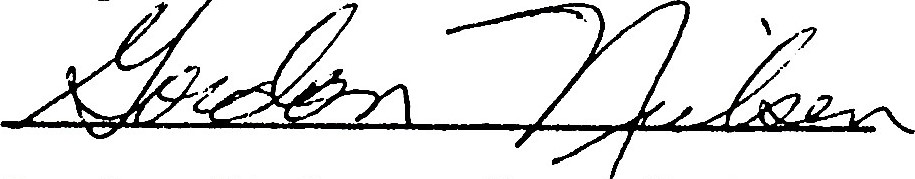 Gordon Neilsen